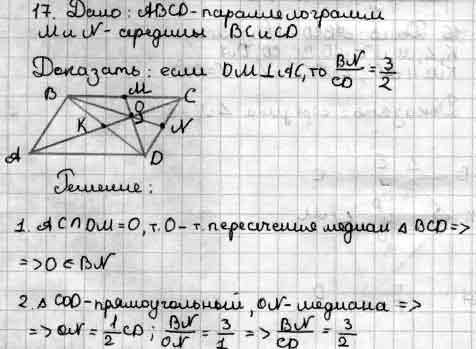 17. Дано: ABCD - параллелограмм
M и N - середины BC и CD
Доказать: если DM⊥AC, то BN/CD = 3/2
B M C
O
K N
A D
Решение:
1. AC∩DM=O, т. O - т. пересечения медиан △ BCD =>
=> O ∈ BN
2. △ COD - прямоугольный, ON - медиана =>
=> ON = 1/2 CD; BN/ON = 3/1 => BN/CD = 3/2